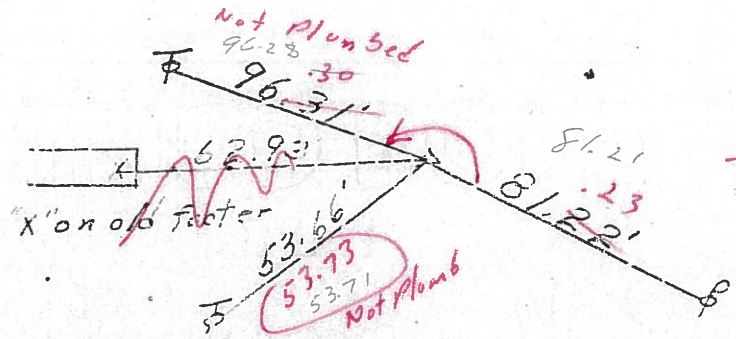 Not Plumbed
96.28
.30
96.31'
62.93'
81.21
.23
81.22'
"X" on old footer
53.66'
53.73
53.71
Not Plumb